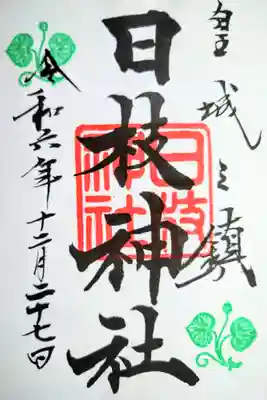 皇城之鎮
日枝神社
日枝
神社
令和六年十二月二十七日